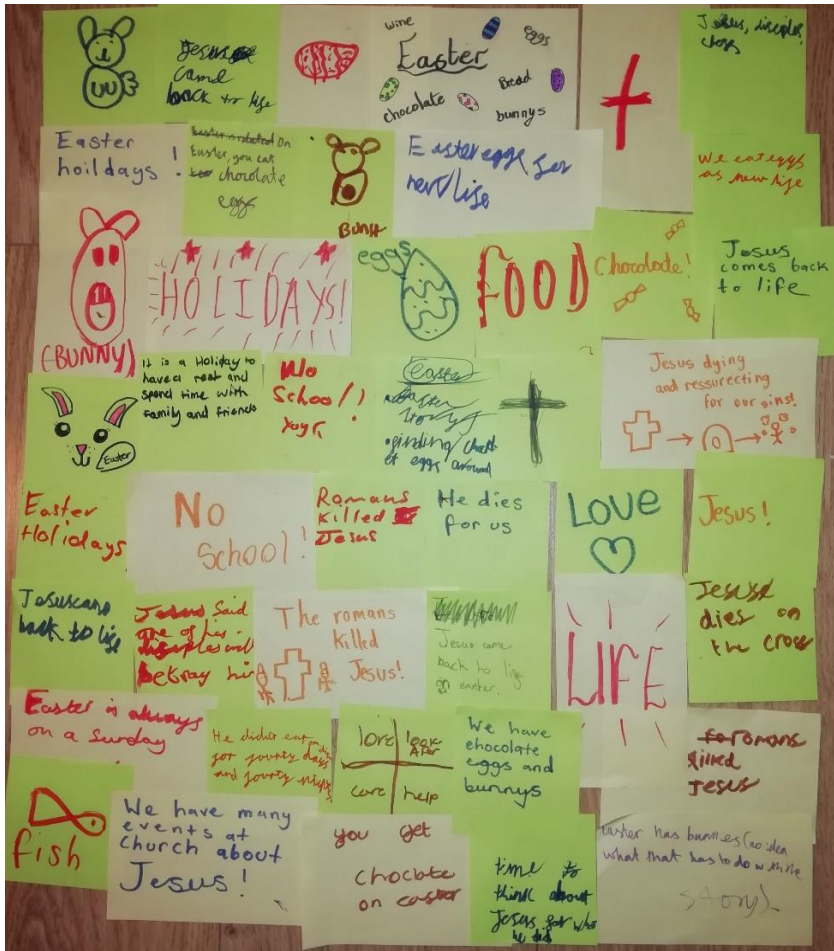 Jesus
came
back to life
wine
eggs
Easter
Bread
chocolate
bunnys
Jesus, disciples,
Easter
hoildays !
Easter is related On
Easter, you eat
chocolate
eggs
Easter eggs for
new life
We eat eggs
as new life
(BUNNY)
HOLIDAYS!
eggs
FOOD
Chocolate!
Jesus
comes back
to life
It is a Holiday to
have a rest and
spend time with
family and friends
Easter
No
School!
easter
Easter
eggs around
Jesus dying
and ressurecting
for our sins!
Easter
Holidays
No
School!
Romans
killed
Jesus
He dies
for us
LOVE
Jesus!
back to life
Jesus Said
one of his
betray him
The romans
killed
Jesus!
Jesus came
back to life
on easter.
LIFE
Jesus
dies on
the cross
Easter is always
on a Sunday
He didn't eat
for fourty days
and fourty nights
love
look
After
care
help
We have
chocolate
eggs and
bunnys
romans
killed
Jesus
fish
We have many
events at
Church about
Jesus!
you get
on easter
time to
think about
Jesus for what
he did
Easter has bunnies (no idea
what that has to do with the
story).